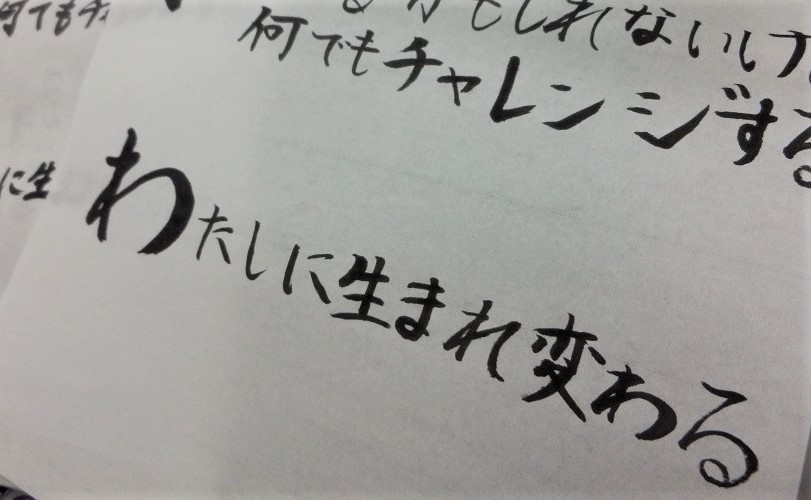 かもしれないけ
何でもチャレンジする
わたしに生まれ変わる
何でもチ
に生